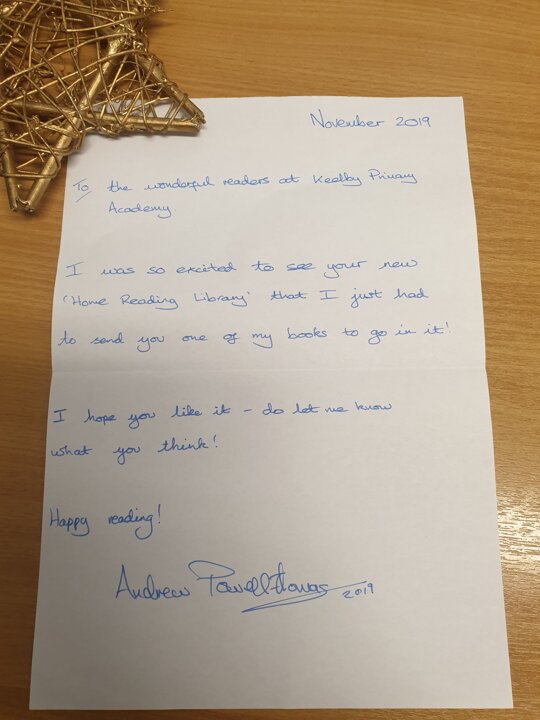 November 2019
To the wonderful readers at Keelby Primary
Academy
I was so excited to see your new
'Home Reading Library' that I just had
to send you one of my books to go in it!
I hope you like it - do let me know
what you think!
Happy reading!
Andrew Powell-Thomas 2019